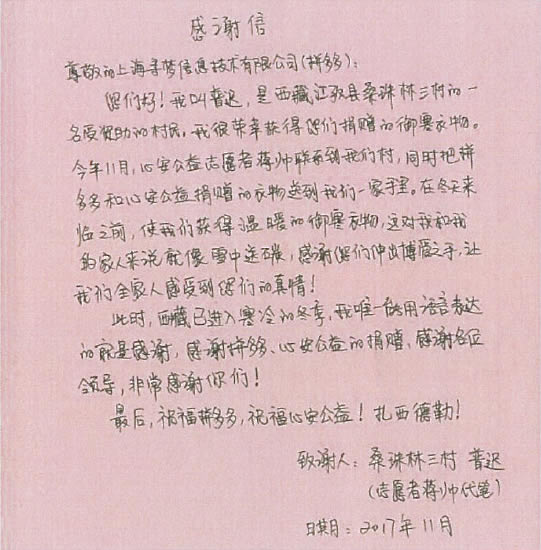 感谢信
尊敬的上海寻梦信息技术有限公司(拼多多):
您们好!我叫普迟,是西藏江孜县桑珠林三村的一
名受资助的村民。我很荣幸获得您们捐赠的御寒衣物。
今年11月,心安公益志愿者蒋帅联系到我们村,同时把拼
多多和心安公益捐赠的衣物送到我们一家手里。在冬天来
临之前,使我们获得温暖的御寒衣物,这对我和我
的家人来说就像雪中送碳,感谢您们伸出博爱之手,让
我们全家人感受到您们的真情!
此时,西藏已进入寒冷的冬季,我唯一能用语言表达
的就是感谢,感谢拼多多、心安公益的捐赠,感谢各位
领导,非常感谢你们!
最后,祝福拼多多,祝福心安公益!扎西德勒!
致谢人:桑珠林三村 普迟
(志愿者蒋帅代笔)
日期:2017年11月